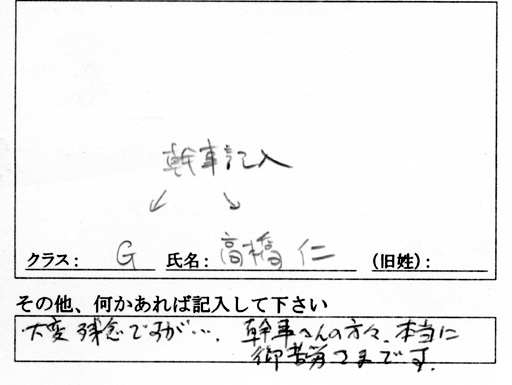 幹事記入
↙ ↘
クラス: G 氏名: 高橋 仁 (旧姓):
その他、何かあれば記入して下さい
大変残念ですが…、幹事さんの方々、本当に
御苦労さまです.